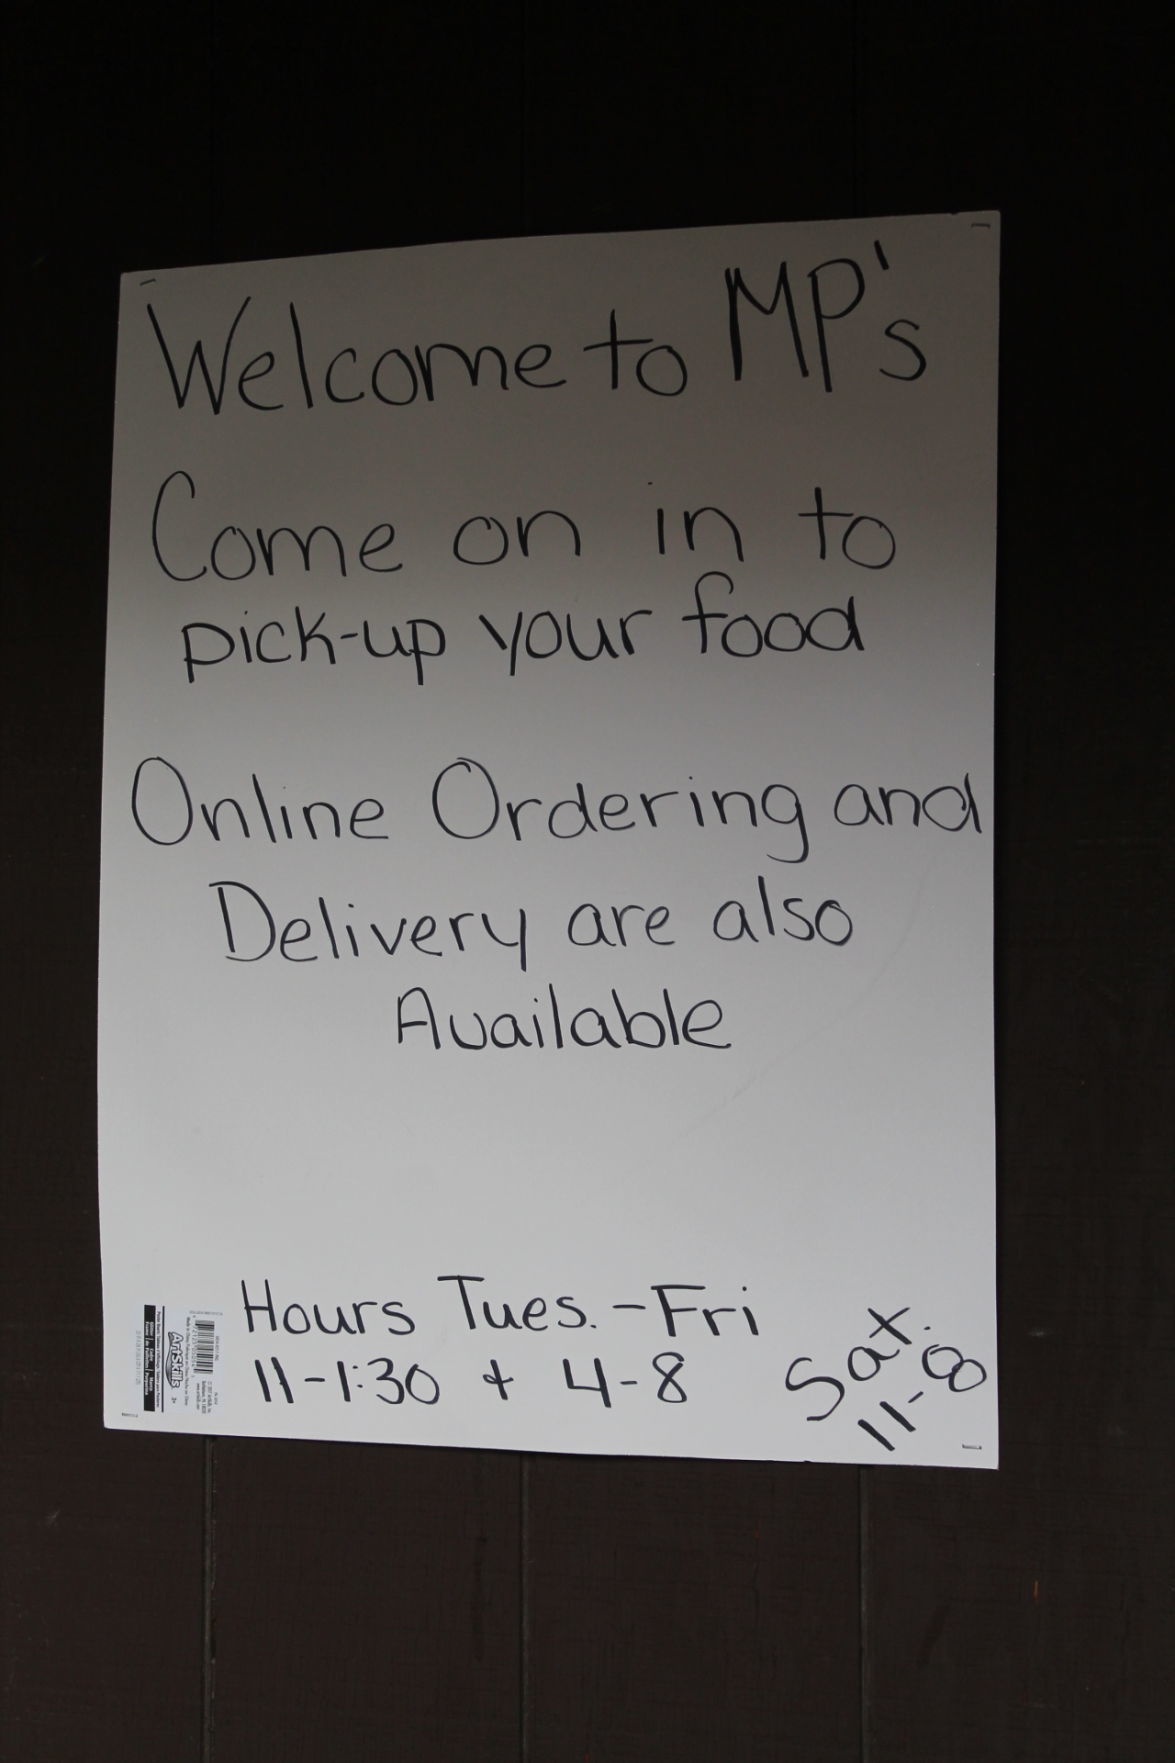 Welcome to MP's
Come on in to
pick-up your food
Online Ordering and
Delivery are also
Available
Hours Tues. - Fri
11-1:30 + 4-8
Sat.
11-8
ArtSkills